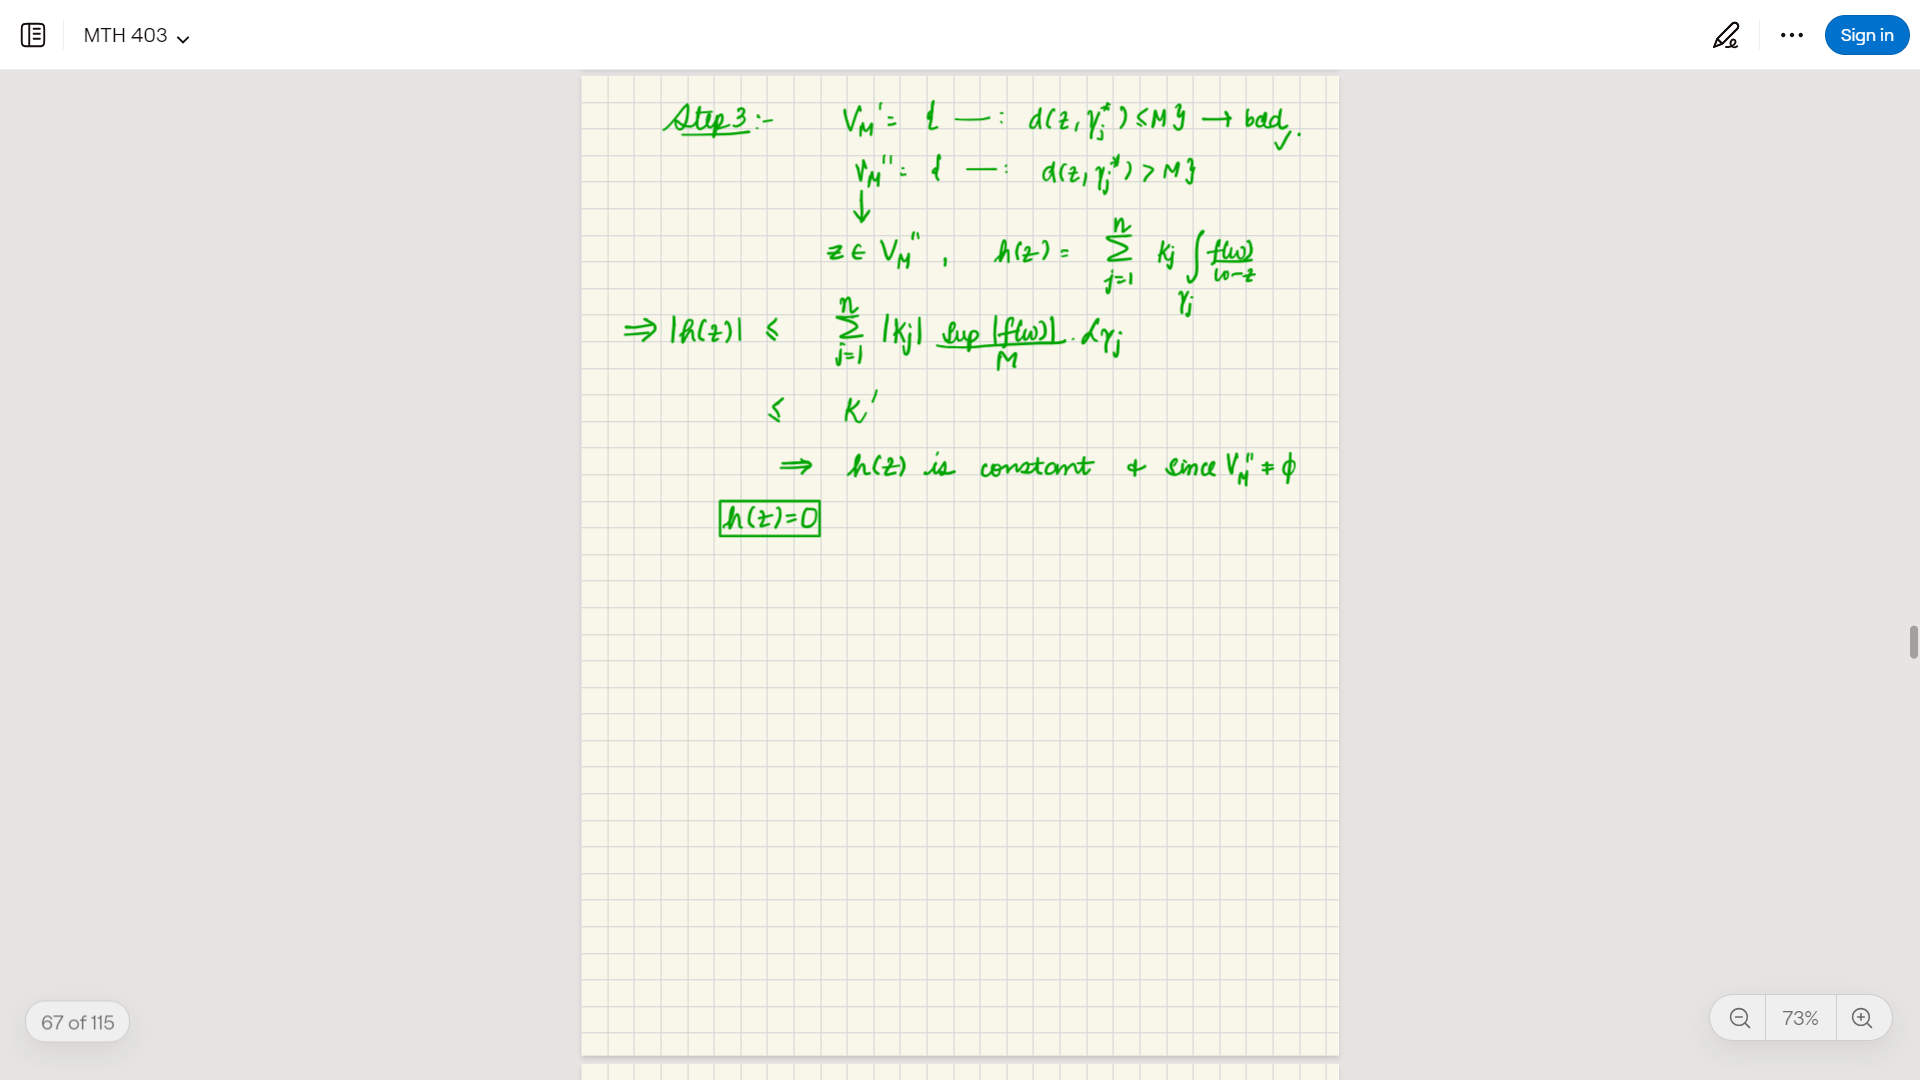 MTH 403
Sign in
Step 3 :- V_M' = { — : d(z, γ_j^*) ≤ M } → bad.
V_M'' = { — : d(z, γ_j^*) > M }
↓
z ∈ V_M'' , h(z) = \sum_{j=1}^{n} k_j \int_{γ_j} \frac{f(w)}{w-z}
⇒ |h(z)| ≤ \sum_{j=1}^{n} |k_j| \frac{sup |f(w)|}{M} . Lγ_j
≤ K'
⇒ h(z) is constant & since V_M'' ≠ ϕ
h(z)=0
67 of 115
73%